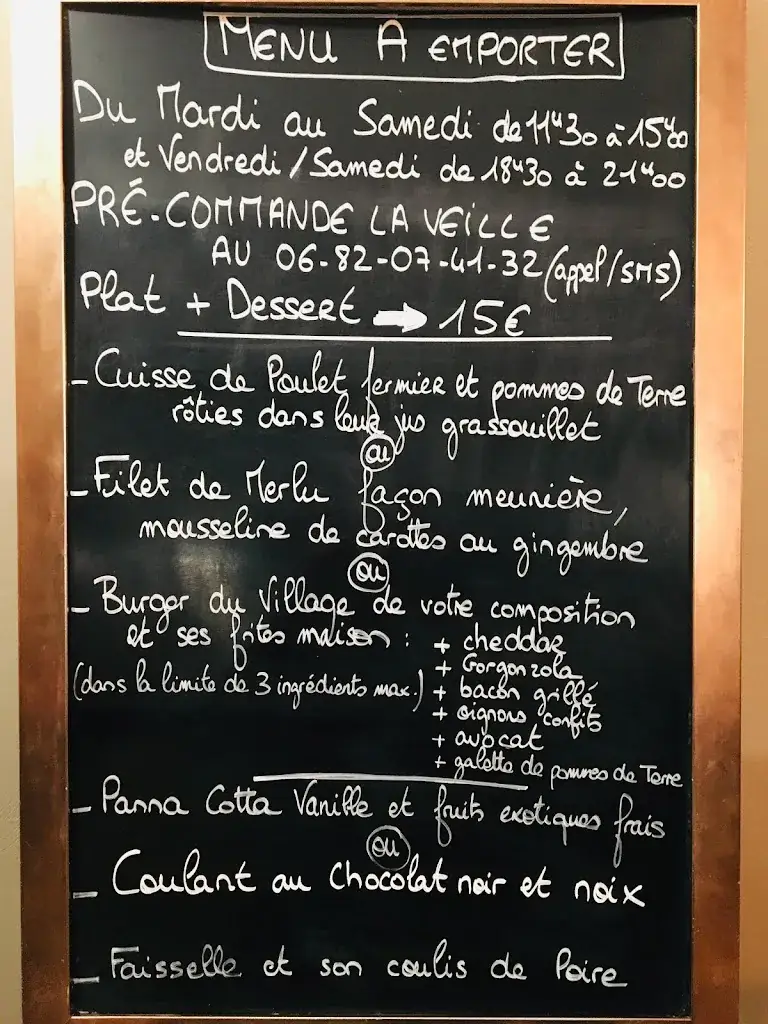 MENU A EMPORTER
Du Mardi au Samedi de 11H30 à 15H00
et Vendredi / Samedi de 18H30 à 21H00
PRÉ-COMMANDE LA VEILLE
AU 06-82-07-41-32 (appel / SMS)
Plat + Dessert → 15€
- Cuisse de Poulet fermier et pommes de Terre
rôties dans leur jus grassouillet
ou
- Filet de Merlu façon meunière,
mousseline de carottes au gingembre
ou
- Burger du Village de votre composition
et ses frites maison : + cheddar
+ Gorgonzola
(dans la limite de 3 ingrédients max.) + bacon grillé
+ oignons confits
+ avocat
+ galette de pommes de Terre
- Panna Cotta Vanille et fruits exotiques frais
ou
- Coulant au Chocolat noir et noix
- Faisselle et son coulis de Poire